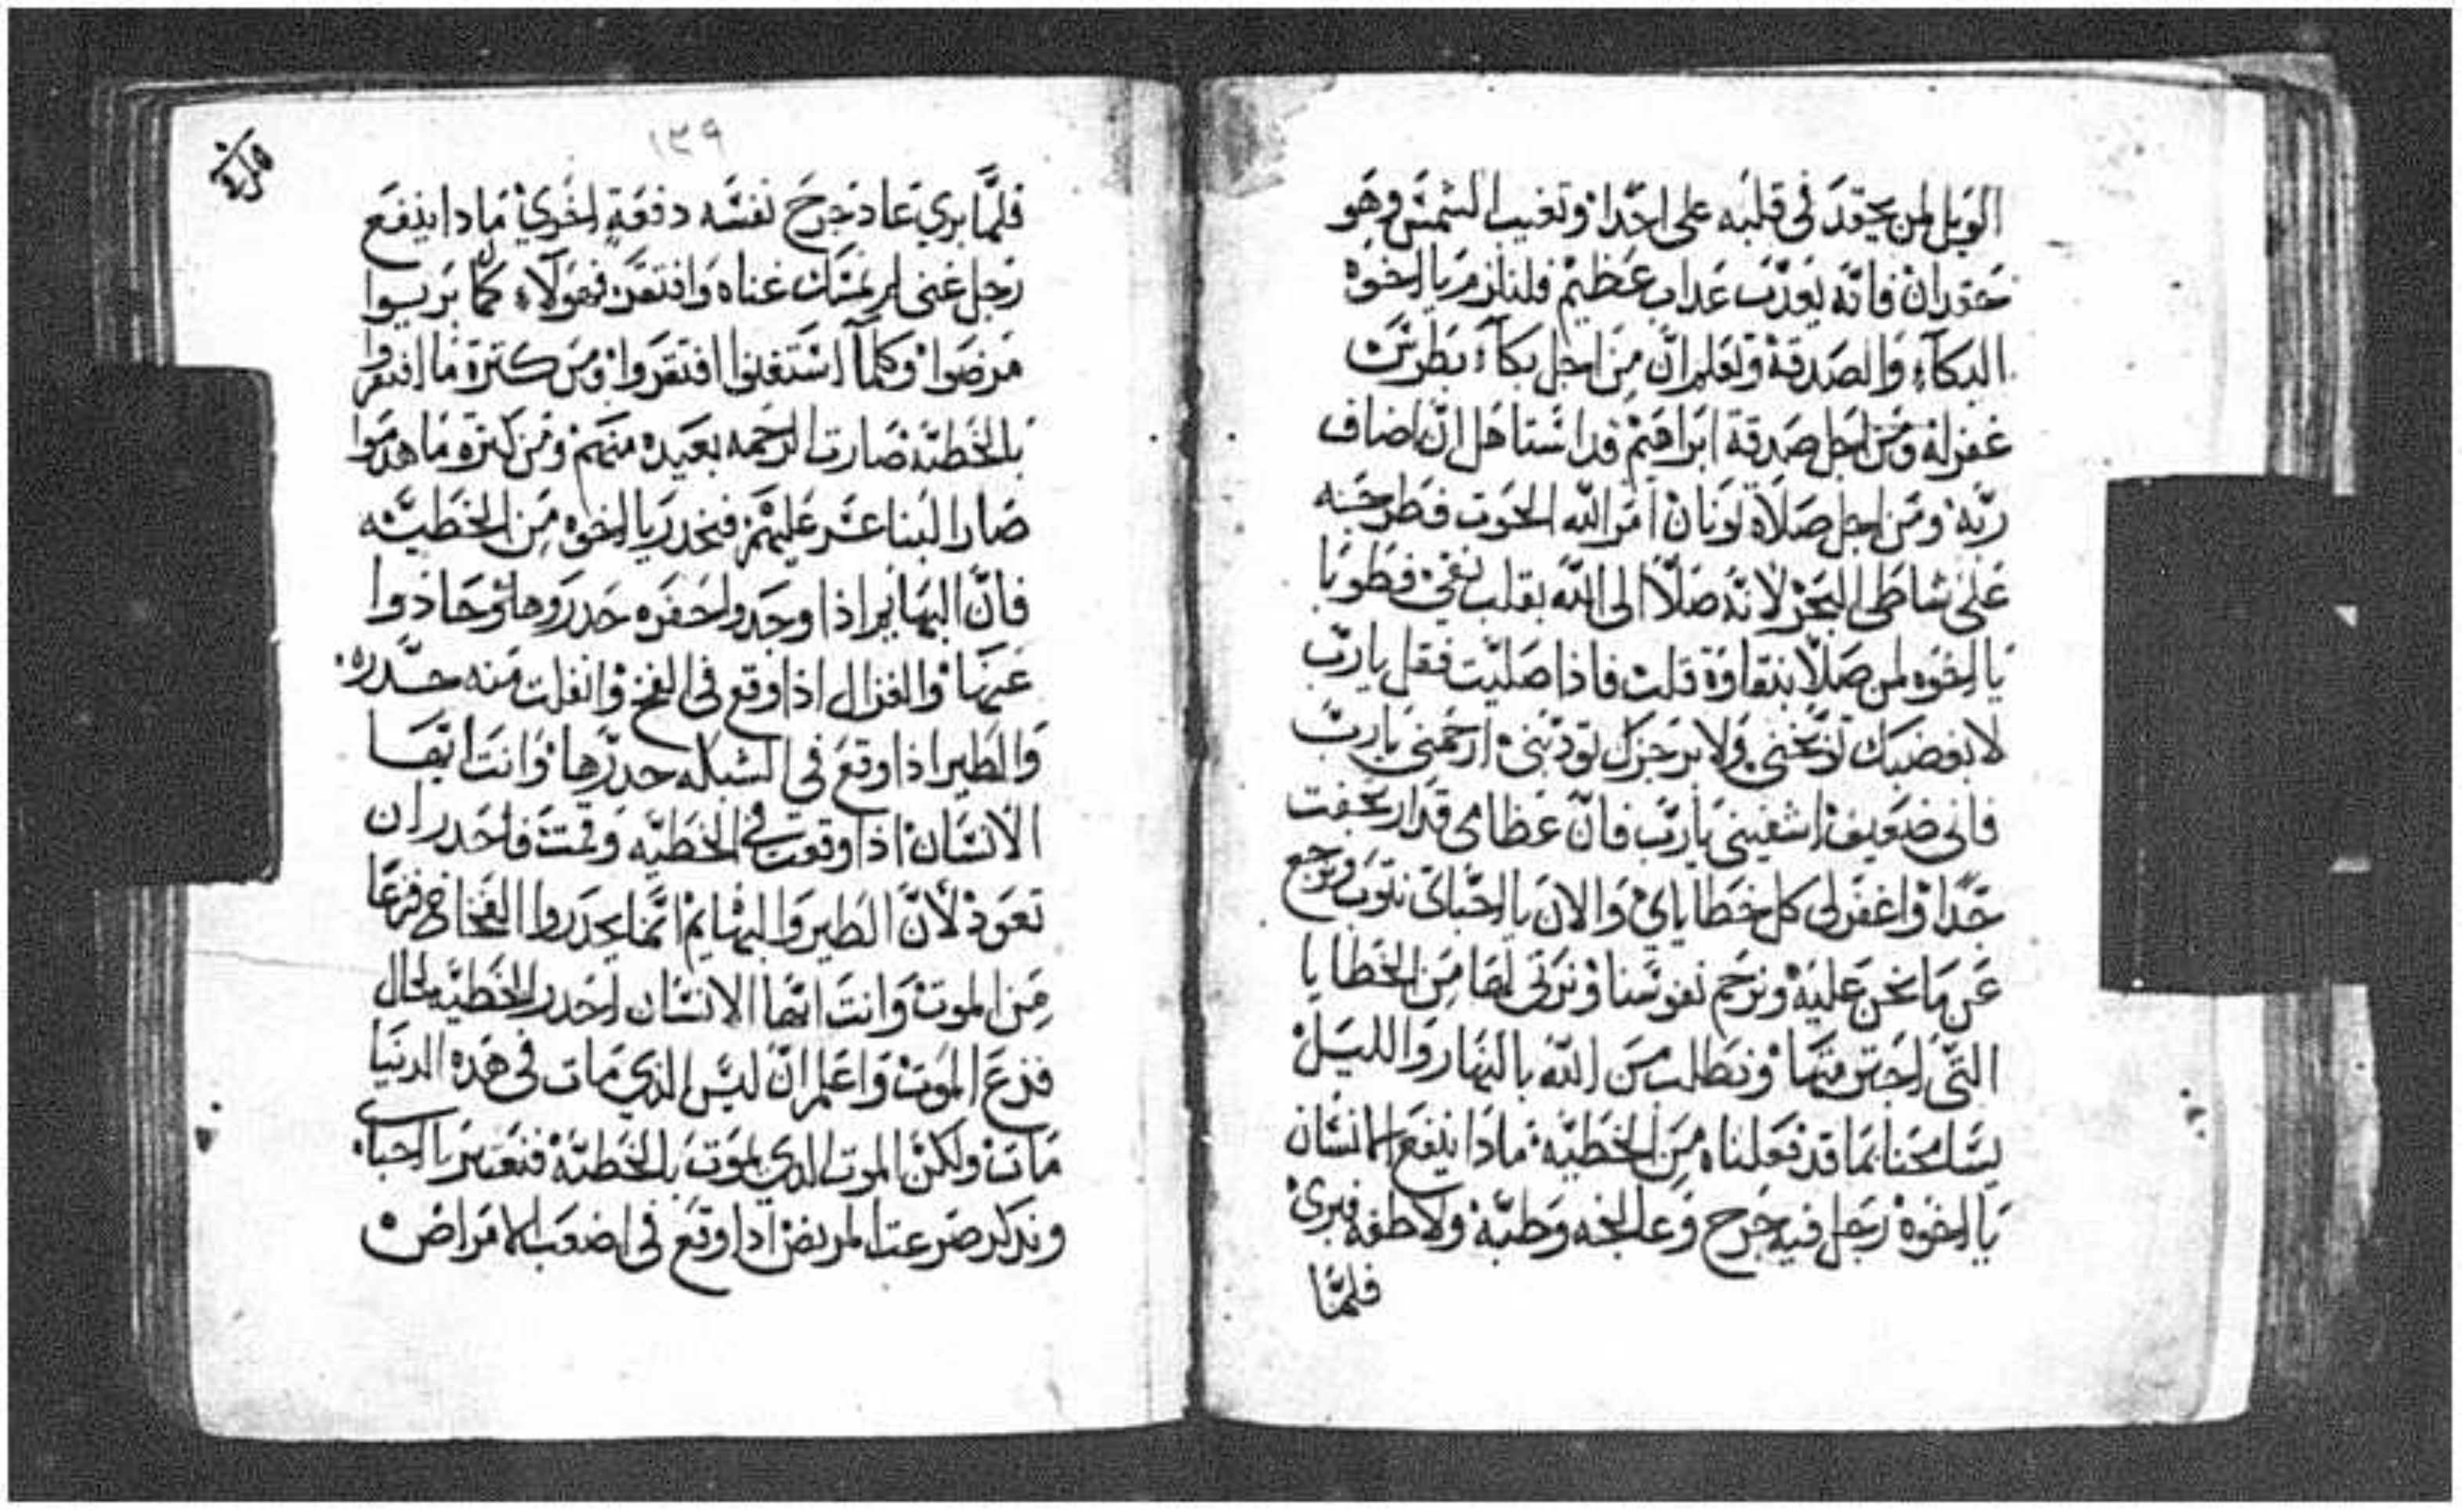 الويل لمن يحقد في قلبه على احدا وتغيب الشمس وهو
حقدان فانه يعذب عداب عظيم فلنلزم يا اخوه
البكاء والصدقة ونعلم ان من اجل بكاء بطرس
غفر له ومن اجل صدقة ابراهيم قد استاهل ان اضاف
ربه ومن اجل صلاة يونان امر الله الحوت فطرحه
على شاطى البحر لانه صلا الى الله بقلب نقي فطوبا
يا اخوه لمن صلا بنقاوة قلت فاذا صليت فقل يارب
لا بغضبك توبخني ولا برجزك تودبني ارحمني يارب
فاني ضعيف اشفيني يارب فان عظامي قد ارتجفت
جدا واغفر لي كل خطاياي والان يا احباي نتوب ونرجع
عن ما نحن عليه ونرحم نفوسنا ونرتي لها من الخطايا
التي احتسمها ونطلب من الله بالنهار والليل
يسامحنا بما قد فعلناه من الخطيه مادا ينفع الانسان
يا اخوه رجل فيه جرح وعالجه وطبه ولاطفه فبرئ
فلما
١٣٩
فلما بري عاد جرح نفسه دفعة اخري مادا ينفع
رجل غني لم يمسك غناه وافتقر فهولاء كلما بريوا
مرضوا وكلما استغنوا افتقروا ومن كترة ما افتقروا
بالخطيه صارت الرحمه بعيده منهم ومن كتره ما هدموا
صار البنا عسر عليهم فنحدر يا اخوه من الخطيه
فان البهايم اذا وجدوا حفره حدروها وحادوا
عنها والغزال اذا وقع في الفخ وانفلت منه حدره
والطير اذا وقع في الشبكه حدرها وانت ايها
الانسان اذا وقعت في الخطيه وقمت فاحدر ان
تعود لان الطير والبهايم انما يحدروا الفخاخ فزعا
من الموت وانت ايها الانسان احدر الخطيه لحال
فزع الموت واعلم ان ليس الدي مات في هده الدنيا
مات ولكن الموت الدي يموت بالخطيه فنعتبر يا احباي
وندكر صرعت المريض ادا وقع في اصعب الامراض